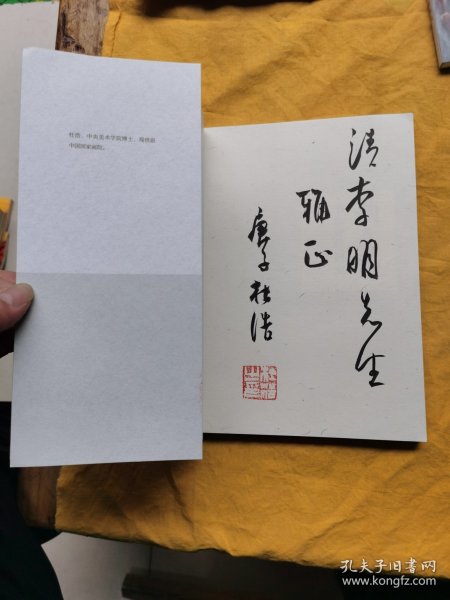 杜浩，中央美术学院博士，现供职
中国国家画院。
请李明先生
辅正
庚子杜浩
孔夫子旧书网
www.kongfz.com